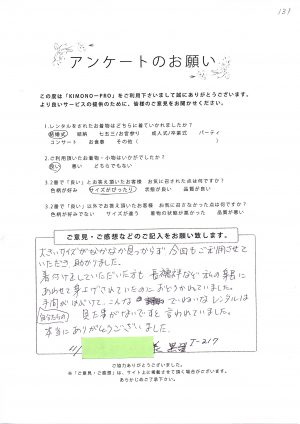 137
アンケートのお願い
この度は「KIMONO－PRO」をご利用下さいまして誠にありがとうございます。
より良いサービスの提供のために、皆様のご意見をお聞かせください。
1.レンタルをされたお着物はどちらに着ていかれましたか？
結婚式 結納 七五三/お宮参り 成人式/卒業式 パーティ
コンサート お食事 その他（ ）
2.ご利用頂いたお着物・小物はいかがでしたか？
良い 悪い どちらでもない
3.2番で「良い」とお答え頂いたお客様 お気に召された点は何ですか？
色柄が好み サイズがぴったり 状態が良い 品質が良い
3.2番で「良い」以外でお答え頂いたお客様 お気に召さなかった点は何ですか？
色柄が好みでない サイズが違う 着物の状態が悪かった 品質が悪い
ご意見・ご感想などのご記入をお願い致します。
大きいサイズがなかなか見つからず 今回もご利用させて
いただき 助かりました。
着付けをしていただいた方も 長襦袢など 私の身長に
あわせて 身上げされていたためにおどろかれていました。
手間がはぶけて、こんな ていねいな レンタルは
見た事がないですと 言われていました。
本当にありがとうございました。
T-217
ご協力ありがとうございました。
※「ご意見・ご感想」は、サイト上に掲載させて頂く場合がございます。
あらかじめご了承下さい。